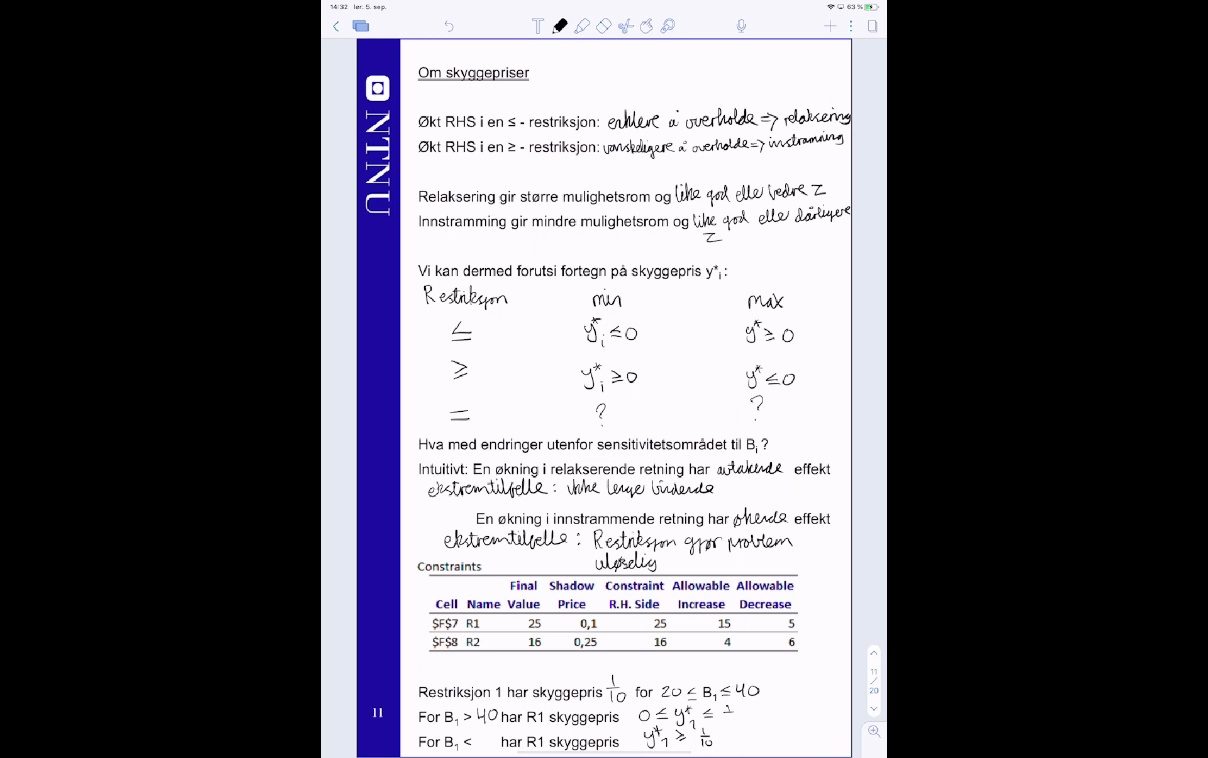 14:32 lør. 5. sep.
63 %
NTNU
Om skyggepriser
Økt RHS i en ≤ - restriksjon: enklere å overholde => relaksering
Økt RHS i en ≥ - restriksjon: vanskeligere å overholde => instramning
Relaksering gir større mulighetsrom og like god elle bedre Z
Innstramming gir mindre mulighetsrom og like god elle dårligere
Z
Vi kan dermed forutsi fortegn på skyggepris y*i:
Restriksjon min max
≤ y*i ≤ 0 y* ≥ 0
≥ y*i ≥ 0 y* ≤ 0
= ? ?
Hva med endringer utenfor sensitivitetsområdet til Bi ?
Intuitivt: En økning i relakserende retning har avtakende effekt
ekstremtilfelle: ikke lenge bindende
En økning i innstrammende retning har økende effekt
ekstremtilfelle: Restriksjon gjør problem
uløselig
Constraints
Final Shadow Constraint Allowable Allowable
Cell Name Value Price R.H. Side Increase Decrease
$F$7 R1 25 0,1 25 15 5
$F$8 R2 16 0,25 16 4 6
Restriksjon 1 har skyggepris 1/10 for 20 ≤ B1 ≤ 40
For B1 > 40 har R1 skyggepris 0 ≤ y*1 ≤ 1
For B1 < har R1 skyggepris y*1 ≥ 1/10
11
11
/
20